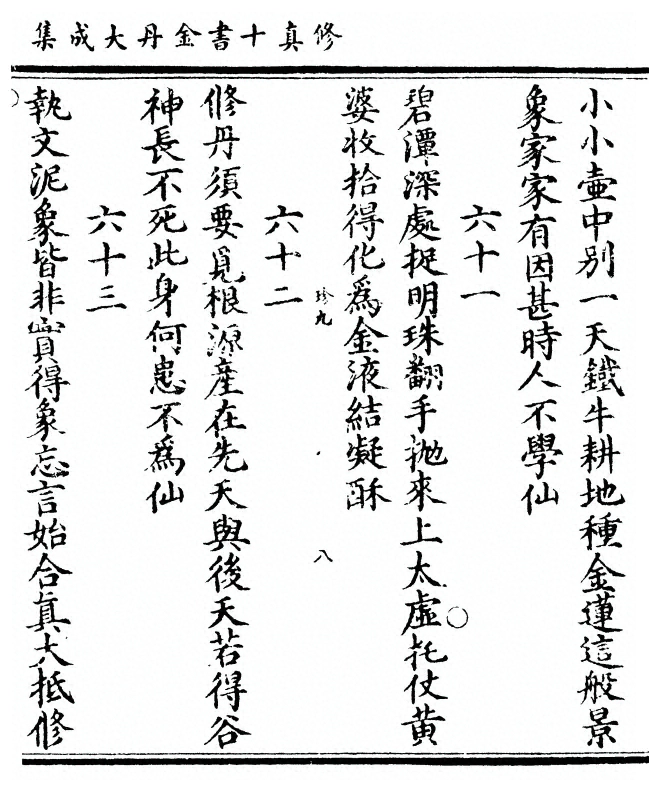 修真十書金丹大成集
小小壷中別一天鐵牛耕地種金蓮這般景
象家家有因甚時人不學仙
六十一
碧潭深處捉明珠翻手抛來上太虛托仗黄
婆收拾得化爲金液結凝酥
珍九
八
六十二
修丹須要覓根源産在先天與後天若得谷
神長不死此身何患不爲仙
六十三
執文泥象皆非實得象忘言始合眞大抵修